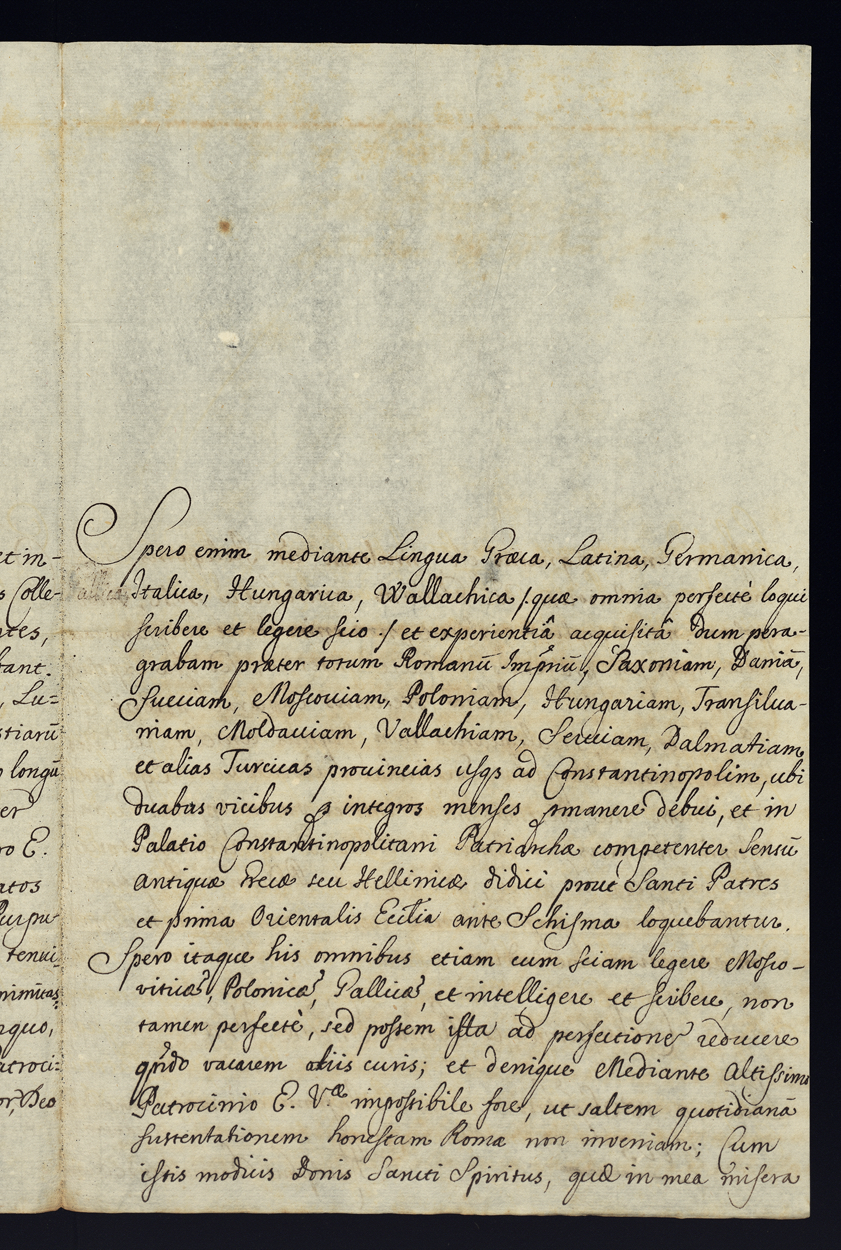 et in-
s Colle-
ntes,
tant.
, Lu=
stiarū
longū
er
ro E.
atos
Purpu
tenui-
nimitas
rquo,
atroci:
or, Deo
Spero enim mediante Lingua Græca, Latina, Germanica,
Italica, Hungarica, Wallachica /: quæ omnia perfectè loqui
scribere et legere scio :/ et experientiâ acquisitâ dum pera-
grabam præter totum Romanū Imp̄riū, Saxoniam, Daniā,
Sueciam, Moscoviam, Poloniam, Hungariam, Transilva-
niam, Moldaviam, Vallachiam, Serviam, Dalmatiam
et alias Turcicas provincias usqs ad Constantinopolim, ubi
duabus vicibus ꝑ integros menses ꝑmanere debui, et in
Palatio Constantinopolitani Patriarchæ competenter Sensū
antiquæ Grecæ seu Hellinicæ didici prout Santi Patres
et prima Orientalis Ecclīa ante Schisma loquebantur.
Spero itaque his omnibus etiam cum sciam legere Mosco-
viticè, Polonicè, Gallicè, et intelligere et scribere, non
tamen perfectè, sed possem ista ad perfectionē reducere
qn̄do vacarem aliis curis; et denique Mediante Altissimo
Patrocinio E. Væ impossibile fore, ut saltem quotidianā
sustentationem honestam Romæ non inveniam; Cum
istis modicis Donis Sancti Spiritus, quæ in mea misera